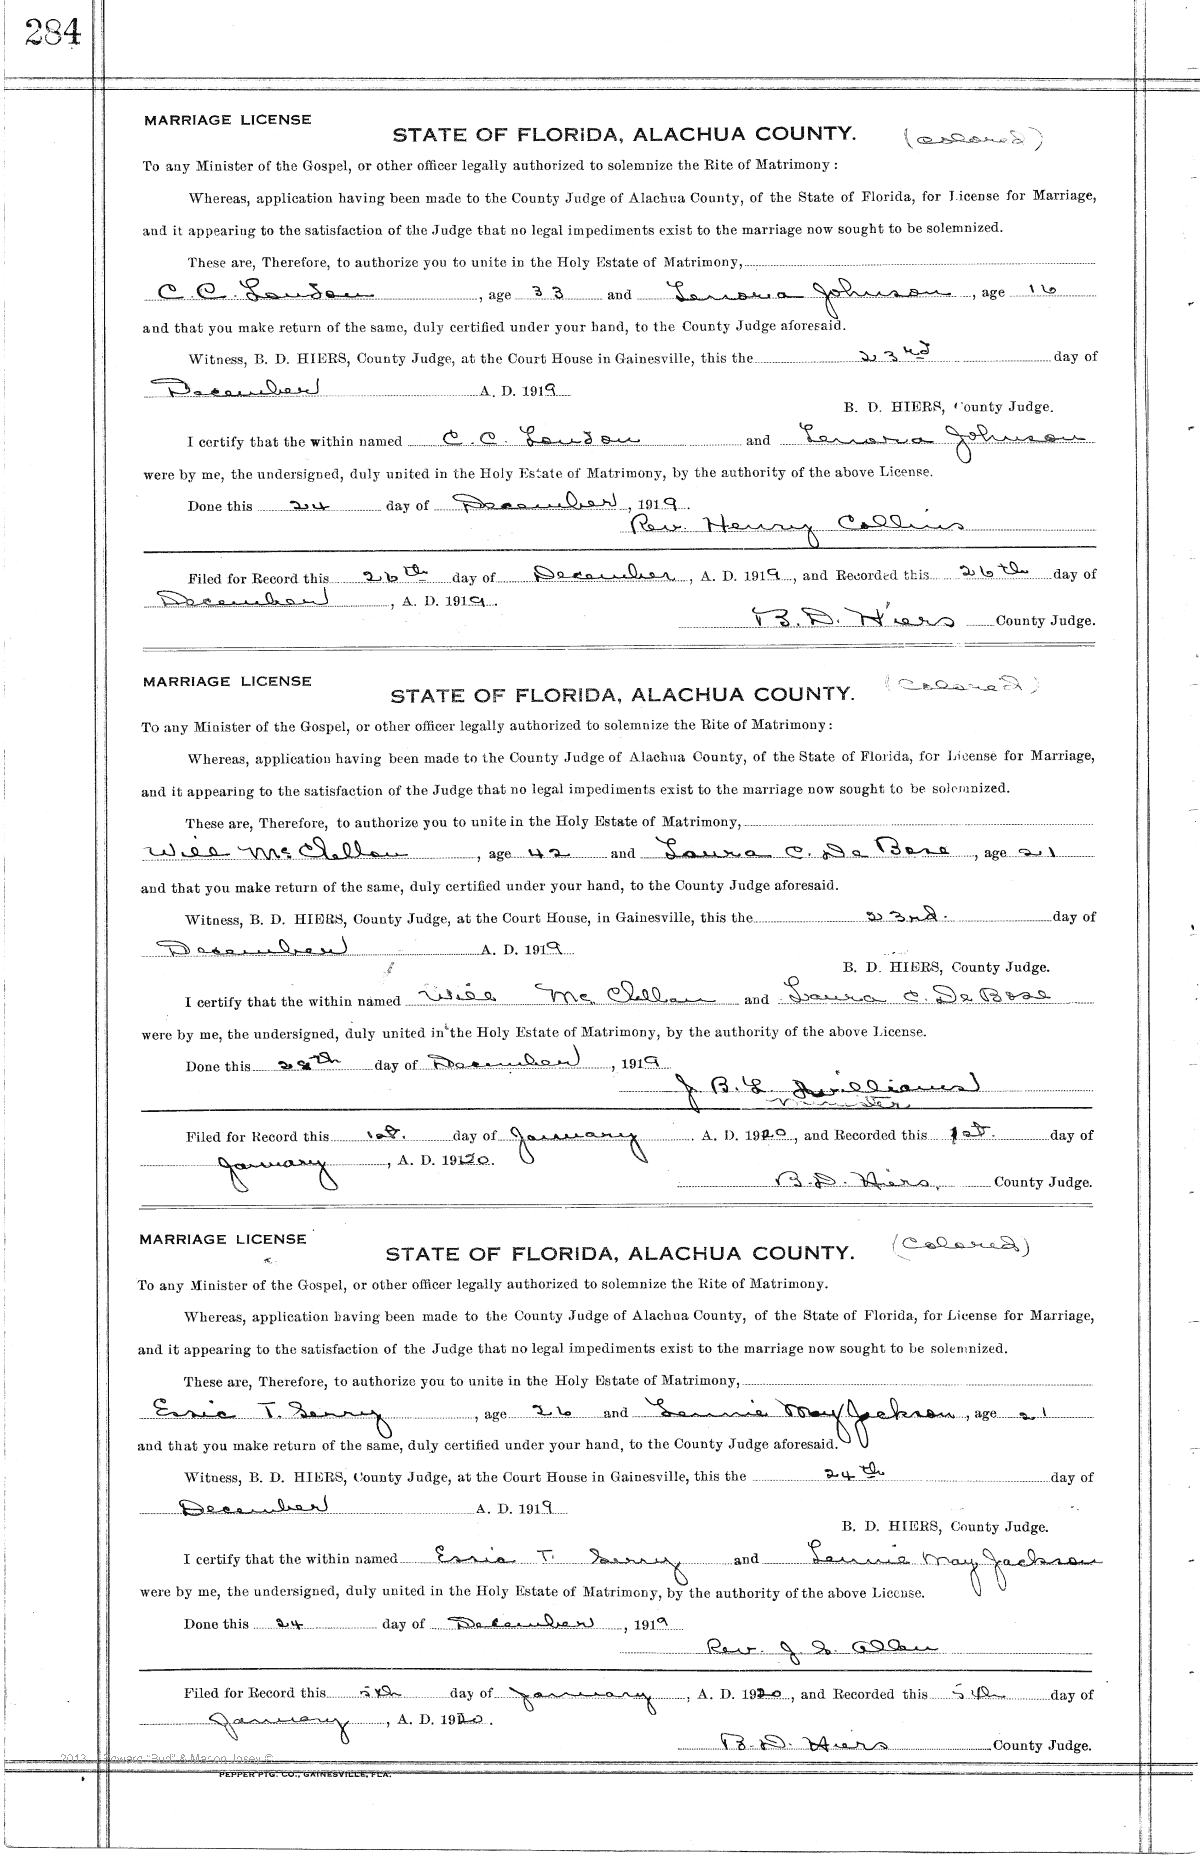 284
MARRIAGE LICENSE
STATE OF FLORIDA, ALACHUA COUNTY. (colored)
To any Minister of the Gospel, or other officer legally authorized to solemnize the Rite of Matrimony:
Whereas, application having been made to the County Judge of Alachua County, of the State of Florida, for License for Marriage,
and it appearing to the satisfaction of the Judge that no legal impediments exist to the marriage now sought to be solemnized.
These are, Therefore, to authorize you to unite in the Holy Estate of Matrimony,
C. C. Loudon, age 33 and Lenora Johnson, age 16
and that you make return of the same, duly certified under your hand, to the County Judge aforesaid.
Witness, B. D. HIERS, County Judge, at the Court House in Gainesville, this the 23rd day of
December A. D. 1919
B. D. HIERS, County Judge.
I certify that the within named C. C. Loudon and Lenora Johnson
were by me, the undersigned, duly united in the Holy Estate of Matrimony, by the authority of the above License.
Done this 24 day of December, 1919.
Rev. Henry Collins
Filed for Record this 26th day of December, A. D. 1919, and Recorded this 26th day of
December, A. D. 1919.
B. D. Hiers County Judge.
MARRIAGE LICENSE
STATE OF FLORIDA, ALACHUA COUNTY. (Colored)
To any Minister of the Gospel, or other officer legally authorized to solemnize the Rite of Matrimony:
Whereas, application having been made to the County Judge of Alachua County, of the State of Florida, for License for Marriage,
and it appearing to the satisfaction of the Judge that no legal impediments exist to the marriage now sought to be solemnized.
These are, Therefore, to authorize you to unite in the Holy Estate of Matrimony,
Will McClellan, age 42 and Laura C. De Bose, age 21
and that you make return of the same, duly certified under your hand, to the County Judge aforesaid.
Witness, B. D. HIERS, County Judge, at the Court House, in Gainesville, this the 23rd. day of
December A. D. 1919
B. D. HIERS, County Judge.
I certify that the within named Will McClellan and Laura C. De Bose
were by me, the undersigned, duly united in the Holy Estate of Matrimony, by the authority of the above License.
Done this 28th day of December, 1919
J. B. L. Williams
Minister
Filed for Record this 1st. day of January A. D. 1920, and Recorded this 1st. day of
January, A. D. 1920.
B. D. Hiers, County Judge.
MARRIAGE LICENSE
STATE OF FLORIDA, ALACHUA COUNTY. (Colored)
To any Minister of the Gospel, or other officer legally authorized to solemnize the Rite of Matrimony.
Whereas, application having been made to the County Judge of Alachua County, of the State of Florida, for License for Marriage,
and it appearing to the satisfaction of the Judge that no legal impediments exist to the marriage now sought to be solemnized.
These are, Therefore, to authorize you to unite in the Holy Estate of Matrimony,
Essie T. Serry, age 26 and Lennie May Jackson, age 21
and that you make return of the same, duly certified under your hand, to the County Judge aforesaid.
Witness, B. D. HIERS, County Judge, at the Court House in Gainesville, this the 24th day of
December A. D. 1919
B. D. HIERS, County Judge.
I certify that the within named Essie T. Serry and Lennie May Jackson
were by me, the undersigned, duly united in the Holy Estate of Matrimony, by the authority of the above License.
Done this 24 day of December, 1919
Rev. J. S. Allen
Filed for Record this 5th day of January, A. D. 1920, and Recorded this 5th day of
January, A. D. 1920.
B. D. Hiers County Judge.
2013 Howard "Bud" & Macon Josey ©
PEPPER PTG. CO., GAINESVILLE, FLA.